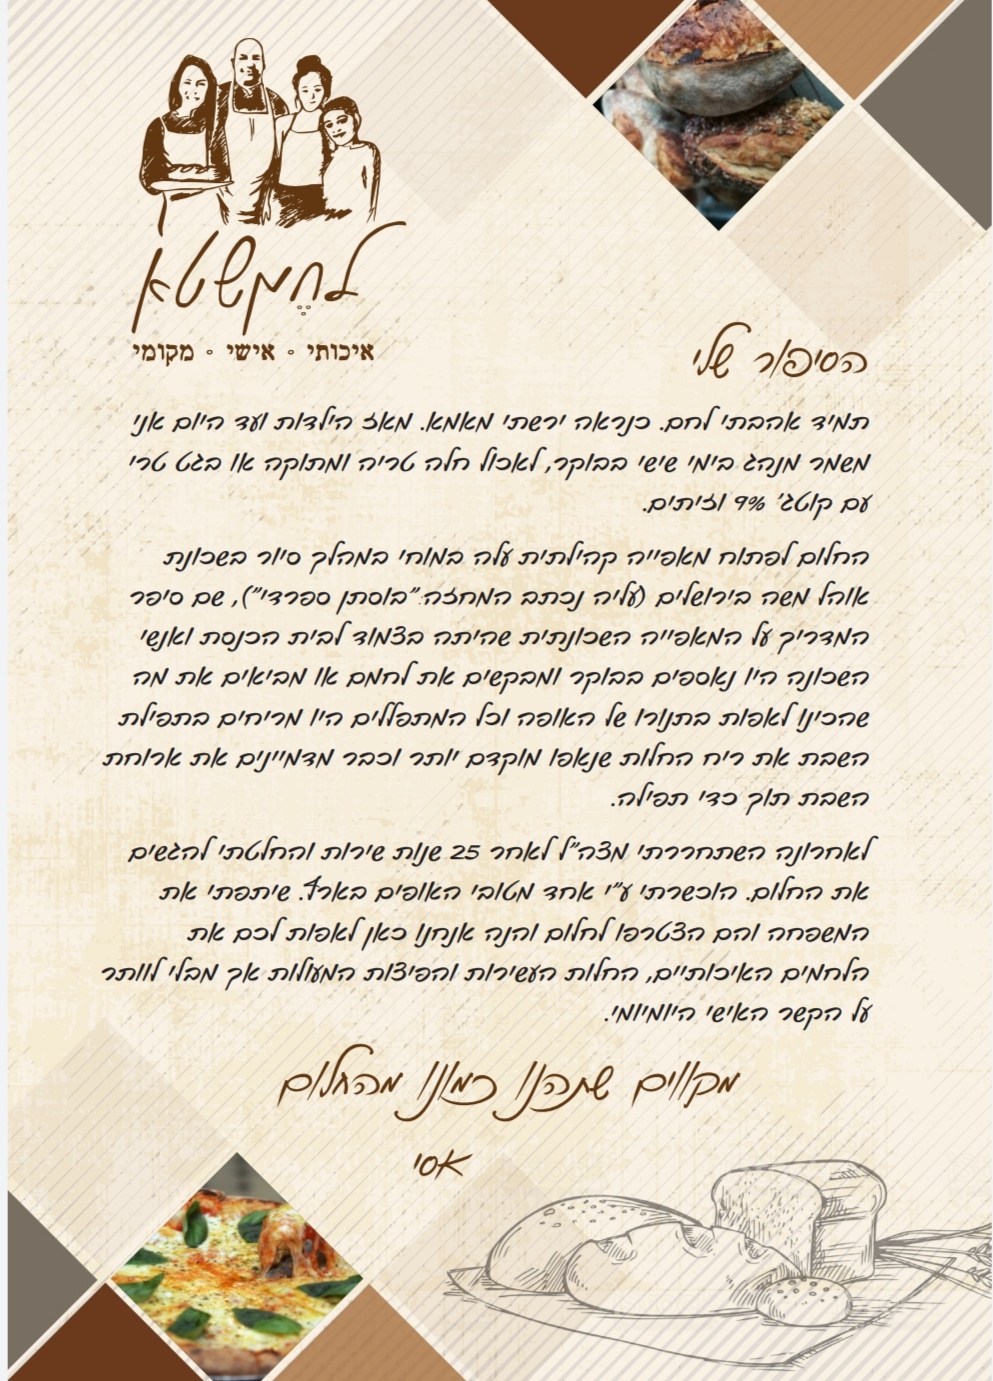 לחמשטא
איכותי ◦ אישי ◦ מקומי
הסיפור שלי
תמיד אהבתי לחם. כנראה ירשתי מאמא. מאז הילדות ועד היום אני
משמר מנהג בימי שישי בבוקר, לאכול חלה טריה ומתוקה או בגט טרי
עם קוטג' 9% וזיתים.
החלום לפתוח מאפייה קהילתית עלה במוחי במהלך סיור בשכונת
אוהל משה בירושלים (עליה נכתב המחזה "בוסתן ספרדי"), שם סיפר
המדריך על המאפייה השכונתית שהיתה בצמוד לבית הכנסת ואנשי
השכונה היו נאספים בבוקר ומבקשים את לחמם או מביאים את מה
שהכינו לאפות בתנורו של האופה וכל המתפללים היו מריחים בתפילת
השבת את ריח החלות שנאפו מוקדם יותר וכבר מדמיינים את ארוחת
השבת תוך כדי תפילה.
לאחרונה השתחררתי מצה"ל לאחר 25 שנות שירות והחלטתי להגשים
את החלום. הוכשרתי ע"י אחד מטובי האופים בארץ. שיתפתי את
המשפחה והם הצטרפו לחלום והנה אנחנו כאן לאפות לכם את
הלחמים האיכותיים, החלות העשירות והפיצות המעולות אך מבלי לוותר
על הקשר האישי היומיומי.
מקווים שתהנו כמונו מהחלום
אסי